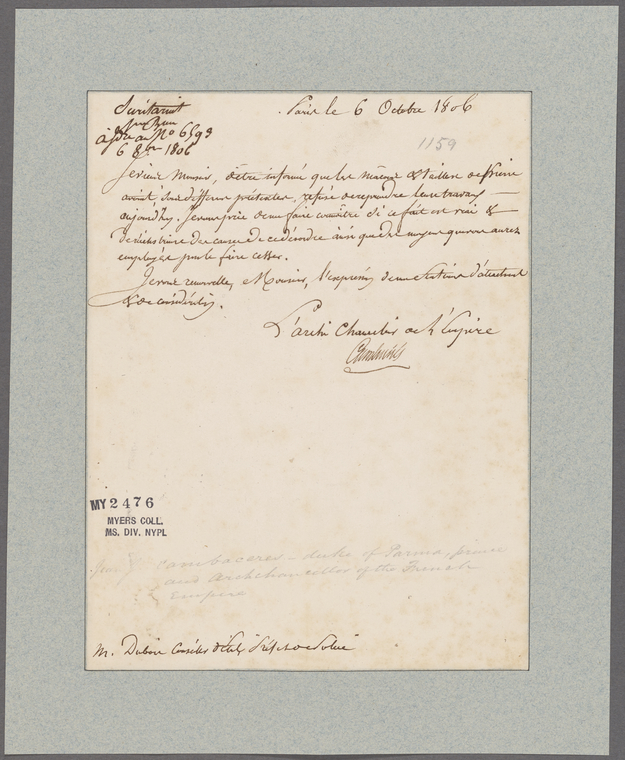 Secrétariat
à Joindre au N° 6593
6 8bre 1806
Paris le 6 Octobre 1806
1159
Je viens Monsieur, d'être informé que les maçons & tailleurs de pierre
avaient, sous différens prétextes, refusé de reprendre leurs travaux
aujourd'hui. Je vous prie de me faire connaître si ce fait est vrai &
de m'instruire des causes de ce désordre ainsi que des moyens que vous aurez
employés pour le faire cesser.
Je vous renouvelle, Monsieur, l'expression de mes sentimens d'attachement
& de considération.
L'archi Chancelier de l'Empire
Cambacérès
MY 2476
MYERS COLL.
MS. DIV. NYPL
Cambaceres - duke of Parma, prince
and Archchancellor of the French
Empire
M. Dubois Conseiller d'Etat, Préfet de Police